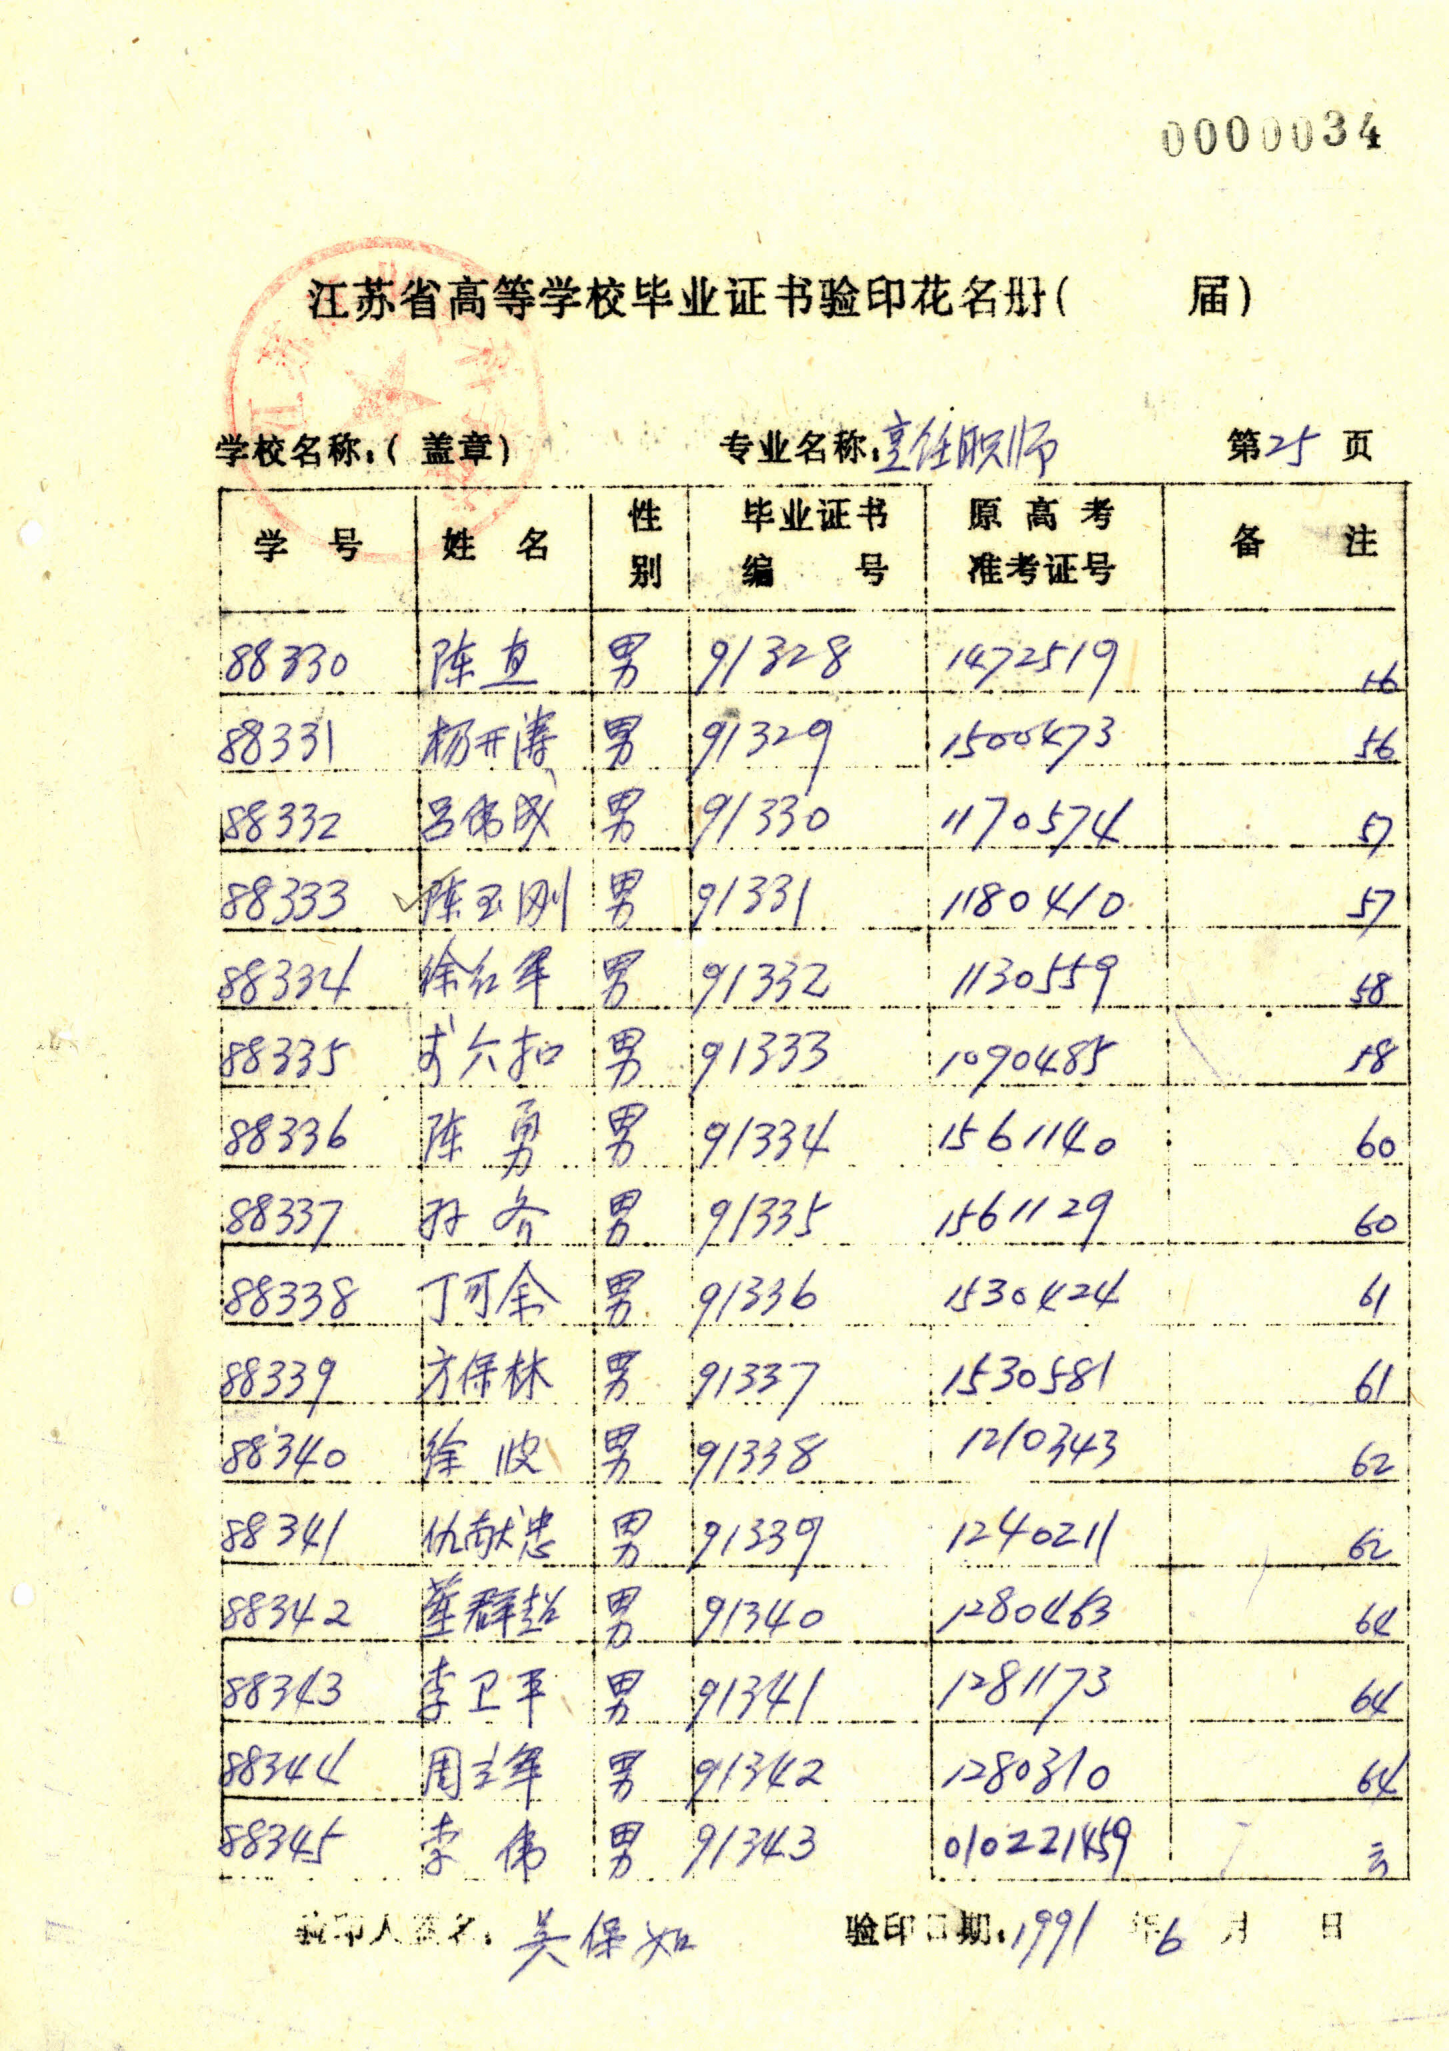 0000034
江苏省高等学校毕业证书验印花名册( 届)
学校名称:(盖章) 专业名称:烹饪职师 第25页
学号 姓名 性别 毕业证书编号 原高考准考证号 备注
88330 陈直 男 91328 1472519 56
88331 杨开涛 男 91329 1500473 56
88332 吕伟成 男 91330 1170574 57
88333 陈玉刚 男 91331 1180410 57
88334 徐红军 男 91332 1130559 58
88335 男 91333 1090485 58
88336 陈勇 男 91334 1561140 60
88337 孙齐 男 91335 1561129 60
88338 丁可余 男 91336 1530424 61
88339 方保林 男 91337 1530581 61
88340 徐波 男 91338 1210343 62
88341 仇献忠 男 91339 1240211 62
88342 董群超 男 91340 1280463 64
88343 李卫平 男 91341 1281173 64
88344 周立军 男 91342 1280310 64
88345 李伟 男 91343 010221459
验印人签名:吴保如 验印日期:1991年6月 日